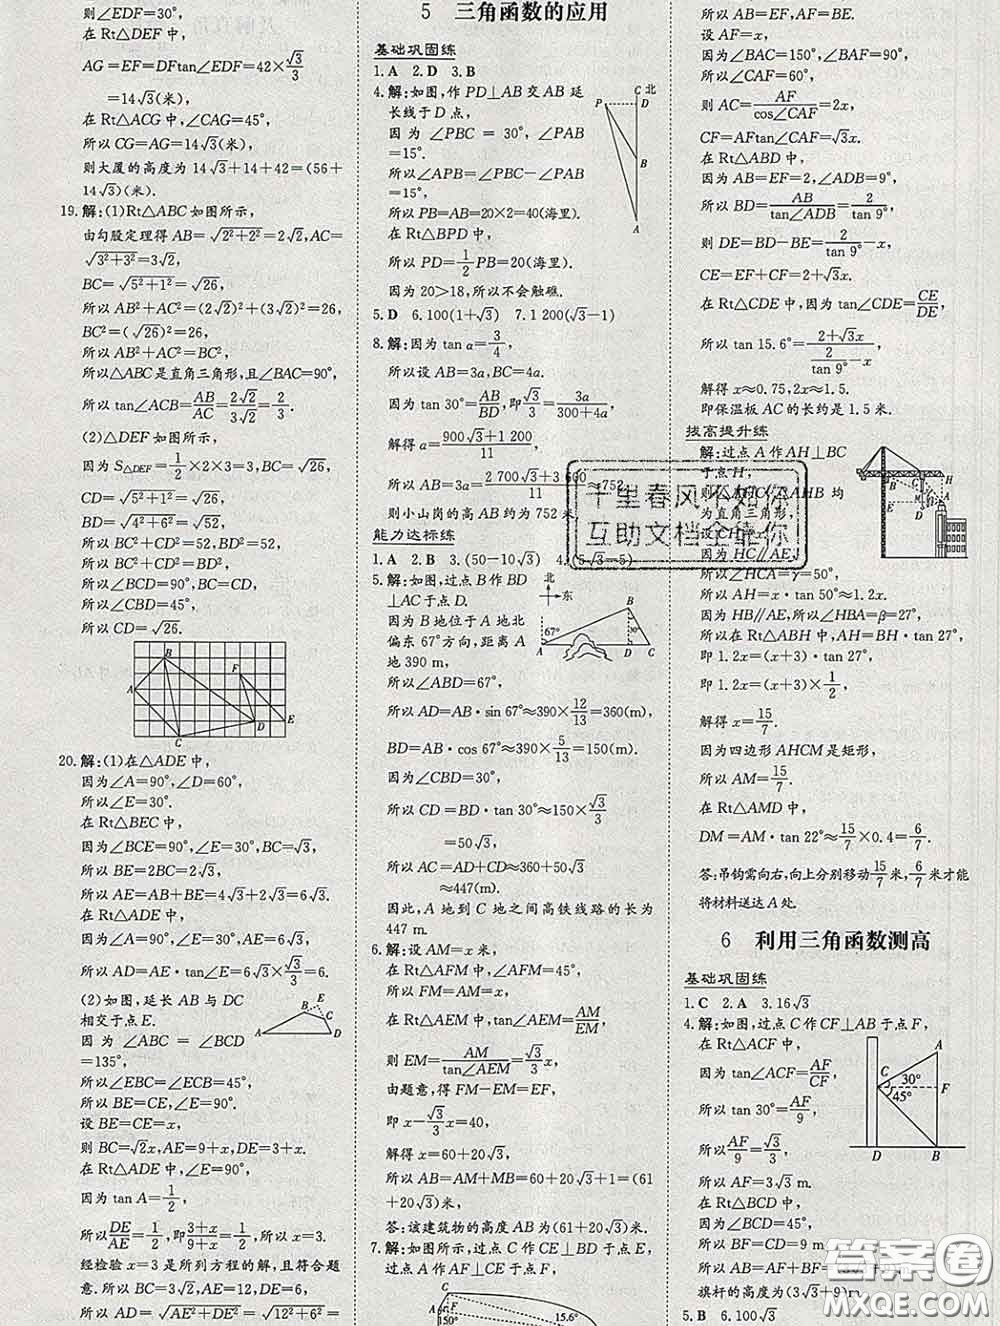 所以∠EDF=30°,
在 Rt△DEF 中,
AG=EF=DFtan∠EDF=42×√3/3
=14√3(米),
在 Rt△ACG 中,∠CAG=45°,
所以 CG=AG=14√3(米),
则大厦的高度为 14√3+14+42=(56+
14√3)(米).
19. 解:(1)Rt△ABC 如图所示,
由勾股定理得 AB=√(2²+2²)=2√2,AC=
√(3²+3²)=3√2,
BC=√(5²+1²)=√26,
所以 AB²+AC²=(2√2)²+(3√2)²=26,
BC²=(√26)²=26,
所以 AB²+AC²=BC²,
所以△ABC 是直角三角形,且∠BAC=90°,
所以 tan∠ACB=AB/AC=2√2/3√2=2/3.
(2)△DEF 如图所示,
因为 S△DEF=1/2×2×3=3,BC=√26,
CD=√(5²+1²)=√26,
BD=√(4²+6²)=√52,
所以 BC²+CD²=52,BD²=52,
所以 BC²+CD²=BD²,
所以∠CBD=45°,
所以 CD=√26.
A B C D E F
20. 解:(1)在△ADE 中,
因为∠A=90°,∠D=60°,
所以∠E=30°.
在 Rt△BEC 中,
因为∠BCE=90°,BC=√3,
所以 BE=2BC=2√3,
所以 AE=AB+BE=4√3+2√3=6√3.
在 Rt△ADE 中,
因为∠A=90°,∠E=30°,AE=6√3,
所以 AD=AE·tan∠E=6√3×√3/3=6.
(2)如图,延长 AB 与 DC
相交于点 E.
因为∠ABC=∠BCD
=135°,
所以∠EBC=∠ECB=45°,
所以 BE=CE,∠E=90°.
设 BE=CE=x,
则 BC=√2x,AE=9+x,DE=3+x.
在 Rt△ADE 中,∠E=90°,
因为 tan A=1/2,
所以 DE/AE=1/2,即 (3+x)/(9+x)=1/2,所以 x=3.
经检验 x=3 是所列方程的解,且符合题
意.所以 BC=3√2,AE=12,DE=6,
所以 AD=√(AE²+DE²)=√(12²+6²)=
5 三角函数的应用
基础巩固练
1. A 2. D 3. B
4. 解:如图,作 PD⊥AB 交 AB 延
长线于 D 点,
因为∠PBC=30°,∠PAB
=15°,
所以∠APB=∠PBC-∠PAB
=15°,
所以 PB=AB=20×2=40(海里).
在 Rt△BPD 中,
所以 PD=1/2PB=20(海里).
因为 20>18,所以不会触礁.
C 北 P D B A
5. D 6. 100(1+√3) 7. 1 200(√3-1)
8. 解:因为 tan α=3/4,
所以设 AB=3a,BC=4a.
因为 tan 30°=AB/BD,即√3/3=3a/(300+4a),
解得 a=(900√3+1 200)/11
所以 AB=3a=(2 700√3+3 600)/11≈752,
则小山岗的高 AB 约为 752 米.
能力达标练
1. A 2. B 3. (50-10√3) 4. (5√3-5)
5. 解:如图,过点 B 作 BD
⊥AC 于点 D.
因为 B 地位于 A 地北
偏东 67°方向,距离 A
地 390 m,
所以∠ABD=67°,
北 东 67° 30° A B C D
所以 AD=AB·sin 67°≈390×12/13=360(m),
BD=AB·cos 67°≈390×5/13=150(m).
因为∠CBD=30°,
所以 CD=BD·tan 30°≈150×√3/3
=50√3,
所以 AC=AD+CD≈360+50√3
≈447(m).
因此,A 地到 C 地之间高铁线路的长为
447 m.
6. 解:设 AM=x 米,
在 Rt△AFM 中,∠AFM=45°,
所以 FM=AM=x,
在 Rt△AEM 中,tan∠AEM=AM/EM,
则 EM=AM/tan∠AEM=√3/3x,
由题意,得 FM-EM=EF,
即 x-√3/3x=40,
解得 x=60+20√3,
所以 AB=AM+MB=60+20√3+1=(61
+20√3)米,
答:该建筑物的高度 AB 为(61+20√3)米.
7. 解:如图所示,过点 C 作 CE⊥BD 于点 E,
过点 A 作 AF⊥CE 于点 F,
150° 15.6°
所以 AB=EF,AF=BE.
设 AF=x,
因为∠BAC=150°,∠BAF=90°,
所以∠CAF=60°,
则 AC=AF/cos∠CAF=2x,
CF=AFtan∠CAF=√3x.
在 Rt△ABD 中,
所以 BD=AB/tan∠ADB=2/tan 9°,
则 DE=BD-BE=2/tan 9°-x,
CE=EF+CF=2+√3x.
在 Rt△CDE 中,因为 tan∠CDE=CE/DE,
所以 tan 15.6°=(2+√3x)/(2/tan 9°-x)
解得 x≈0.75,2x≈1.5.
即保温板 AC 的长约是 1.5 米.
拔高提升练
解:过点 A 作 AH⊥BC
于点 H,
为直角三角形,
因为 HC∥AE,
所以∠HCA=γ=50°,
所以 AH=x·tan 50°≈1.2x.
因为 HB∥AE,所以∠HBA=β=27°,
在 Rt△ABH 中,AH=BH·tan 27°,
即 1.2x=(x+3)·tan 27°,
即 1.2x=(x+3)×1/2,
解得 x=15/7.
因为四边形 AHCM 是矩形,
所以 AM=15/7.
在 Rt△AMD 中,
DM=AM·tan 22°≈15/7×0.4=6/7.
答:吊钩需向右,向上分别移动15/7米,6/7米才能
将材料送达 A 处.
6 利用三角函数测高
基础巩固练
1. C 2. A 3. 16√3
4. 解:如图,过点 C 作 CF⊥AB 于点 F,
在 Rt△ACF 中,
因为 tan∠ACF=AF/CF,
所以 tan 30°=AF/9,
所以 AF/9=√3/3,
所以 AF=3√3 m.
在 Rt△BCD 中,
因为∠BCD=45°,
所以 BF=CD=9 m.
旗杆的高度为(3√3+9)m.
A C F D B 30° 45°
5. B 6. 100√3
千里春风不如你
互助文档全靠你
答案圈
MXQE.COM